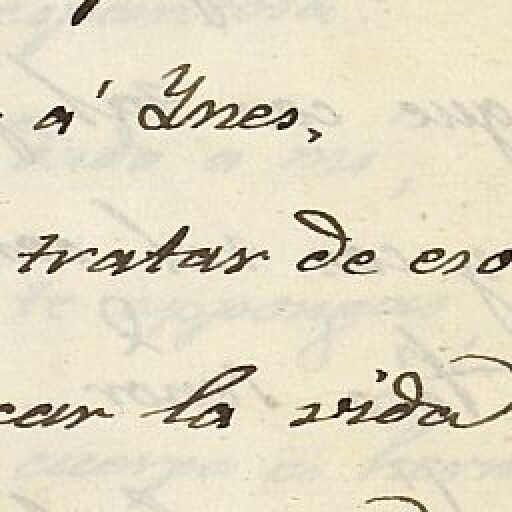 á Ynes,
tratar de eso
car la vida